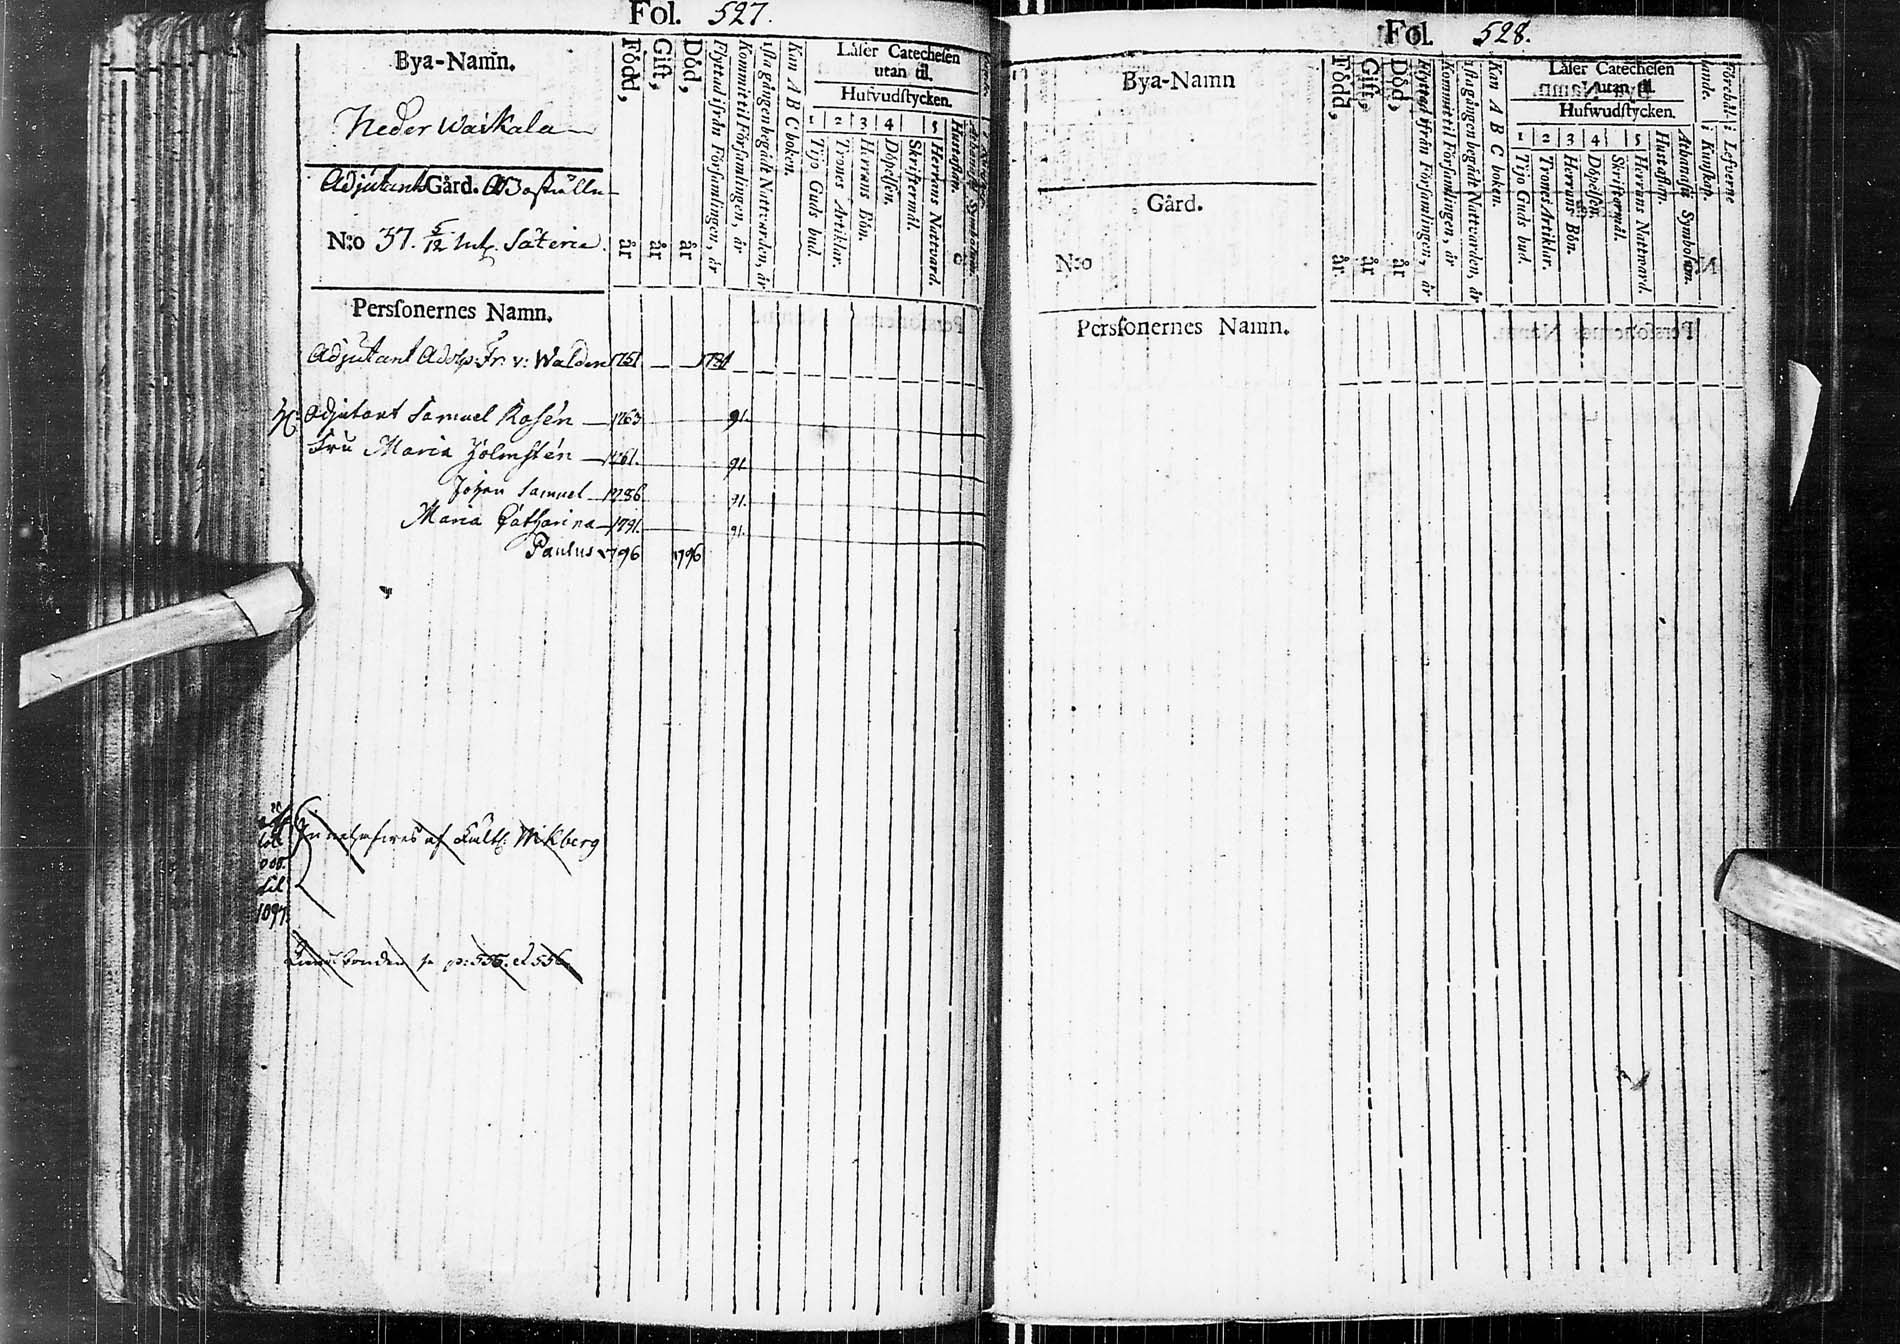 Fol. 527.
Bya-Namn.
Neder Waikala
Adjutants Gård. Boställe
N:o 37. 5/12 Säterie.
Född, år
Gift, år
Död, år
Flyttad ifrån Församlingen, år
Kommit til Församlingen, år
gången begådt Nattvarden, år
Kan A B C boken.
Läser Catechesen
utan til.
Hufvudstycken.
1 2 3 4 5
Tijo Guds bud.
Trones Artiklar.
Herrans Bön.
Döpelsen.
Skriftermål.
Herrans Nattvard.
Hustaflan.
Persfonernes Namn.
Adjutant Adolp: Fr: v: Walden 1751 1791
Adjutant Samuel Rosén 1763 91.
Fru Maria Holmstén 1761. 91
Johan Samuel 1786 91.
Maria Catharina 1791. 91.
Paulus 1796 1796
af Wikberg
1097
p: 555. et 556
Fol. 528.
Bya-Namn
Gård.
N:o
Född, år.
Gift, år
Död, år
Flyttad ifrån Församlingen, år
Kommit til Församlingen, år
gången begådt Nattvarden, år
Kan A B C boken.
Läser Catechesen
utan til.
Hufwudstycken.
1 2 3 4 5
Tijo Guds bud.
Trones Artiklar.
Herrans Bön.
Döpelsen.
Skriftermål.
Herrans Nattward.
Hustaflan.
Athanasii Symbolum.
i Kunskap.
i Lefverne
Persfonernes Namn.